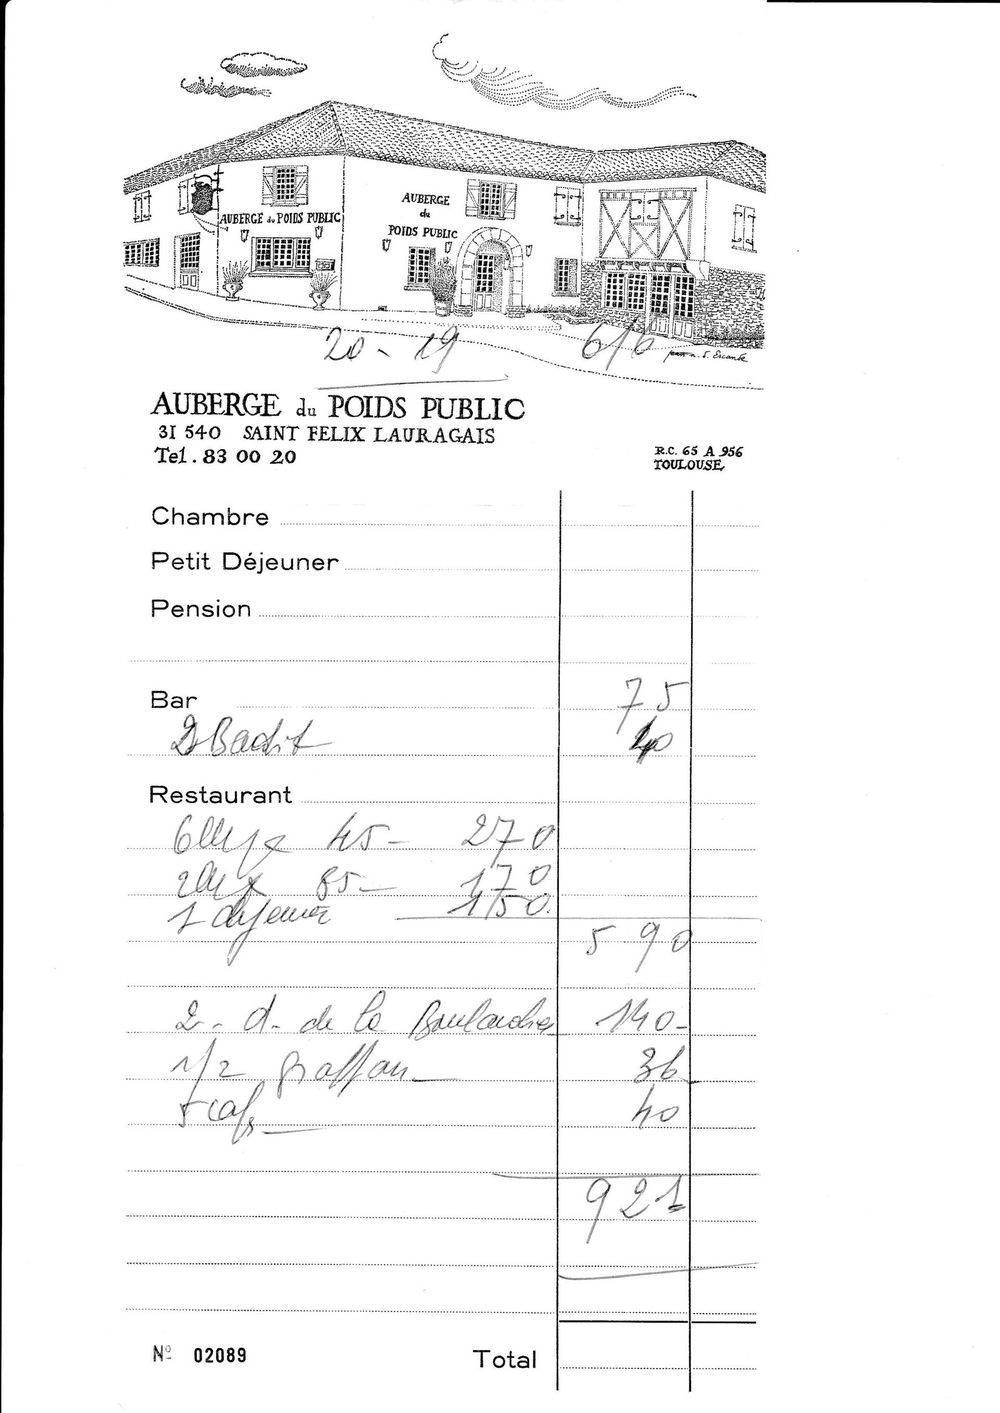 AUBERGE du POIDS PUBLIC
AUBERGE
du
POIDS PUBLIC
20 - 19
6/6
AUBERGE du POIDS PUBLIC
31 540 SAINT FELIX LAURAGAIS
Tel. 83 00 20
R.C. 65 A 956
TOULOUSE
Chambre
Petit Déjeuner
Pension
Bar 75
2 Badoit 40
Restaurant
6 45- 270
2 85- 170
1 150
590
2 - d. de la 140-
1/2 36
5 cafs 40
921
Nº 02089 Total